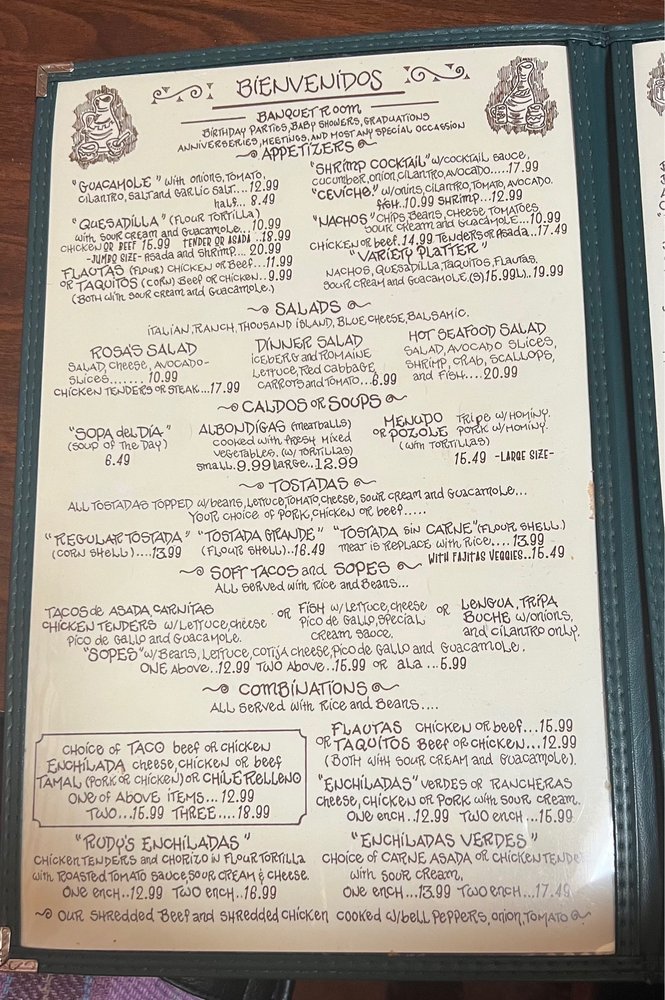 BIENVENIDOS
BANQUET ROOM
BIRTHDAY PARTIES, BABY SHOWERS, GRADUATIONS
ANNIVERSERIES, MEETINGS, AND MOST ANY SPECIAL OCCASSION
APPETIZERS
"GUACAMOLE" with onions, TOMATO,
CILANTRO, SALT and GARLIC SALT.... 12.99
half... 8.49
"QUESADILLA" (FLOUR TORTILLA)
with SOUR CREAM and GUACAMOLE... 10.99
CHICKEN OR BEEF 15.99 TENDER OR ASADA .. 18.99
-JUMBO SIZE- ASADA and SHRIMP.... 20.99
FLAUTAS (FLOUR) CHICKEN OR BEEF... 11.99
OR TAQUITOS (CORN) BEEF OR CHICKEN.. 9.99
(BOTH WITH SOUR CREAM and GUACAMOLE.)
"SHRIMP COCKTAIL" w/COCKTAIL SAUCE,
CUCUMBER, ONION, CILANTRO, AVOCADO.....17.99
"CEVICHE" w/ONINS, CILANTRO, TOMATO, AVOCADO.
FISH..10.99 SHRIMP...12.99
"NACHOS" CHIPS BEANS, CHEESE TOMATOES
SOUR CREAM and GUACAMOLE...10.99
CHICKEN OR BEEF..14.99 TENDERS OR ASADA..17.49
"VARIETY PLATTER"
NACHOS, QUESADILLA, TAQUITOS, FLAUTAS.
SOUR CREAM and GUACAMOLE.(S) 15.99(L).. 19.99
SALADS
ITALIAN, RANCH, THOUSAND ISLAND, BLUE CHEESE, BALSAMIC.
ROSA'S SALAD
SALAD, CHEESE, AVOCADO-
SLICES....... 10.99
CHICKEN TENDERS OR STEAK...17.99
DINNER SALAD
ICEBERG and ROMAINE
LETTUCE, RED CABBAGE,
CARROTS and TOMATO...6.99
HOT SEAFOOD SALAD
SALAD, AVOCADO SLICES,
SHRIMP, CRAB, SCALLOPS,
and FISH....20.99
CALDOS OR SOUPS
"SOPA del DÍA"
(SOUP OF THE DAY)
6.49
ALBONDIGAS (MEATBALLS)
COOKED with FRESH MIXED
VEGETABLES. (W/TORTILLAS)
SMALL..9.99 LARGE..12.99
MENUDO TRIPE W/HOMINY.
OR POZOLE PORK W/HOMINY.
(with TORTILLAS)
15.49 -LARGE SIZE-
TOSTADAS
ALL TOSTADAS TOPPED w/BEANS, LETTUCE, TOMATO, CHEESE, SOUR CREAM and GUACAMOLE...
YOUR CHOICE OF PORK, CHICKEN OR BEEF.....
"REGULAR TOSTADA"
(CORN SHELL)....13.99
"TOSTADA GRANDE"
(FLOUR SHELL)..16.49
"TOSTADA SIN CARNE" (FLOUR SHELL.)
MEAT IS REPLACE WITH RICE.... 13.99
WITH FAJITAS VEGGIES..15.49
SOFT TACOS and SOPES
ALL SERVED WITH RICE AND BEANS...
TACOS de ASADA, CARNITAS
CHICKEN TENDERS w/LETTUCE, CHEESE
PICO de GALLO and GUACAMOLE.
OR FISH w/LETTUCE, CHEESE
PICO de GALLO, SPECIAL
CREAM SAUCE.
OR LENGUA, TRIPA
BUCHE w/ONIONS,
and CILANTRO ONLY.
"SOPES" w/BEANS, LETTUCE, COTIJA CHEESE, PICO de GALLO and GUACAMOLE.
ONE ABOVE..12.99 TWO ABOVE..15.99 OR ALA...5.99
COMBINATIONS
ALL SERVED WITH RICE AND BEANS....
CHOICE OF TACO BEEF OR CHICKEN
ENCHILADA CHEESE, CHICKEN OR BEEF
TAMAL (PORK OR CHICKEN) OR CHILE RELLENO
ONE OF ABOVE ITEMS... 12.99
TWO...15.99 THREE....18.99
FLAUTAS CHICKEN OR BEEF...15.99
OR TAQUITOS BEEF OR CHICKEN...12.99
(BOTH WITH SOUR CREAM and GUACAMOLE).
"ENCHILADAS" VERDES OR RANCHERAS
CHEESE, CHICKEN OR PORK WITH SOUR CREAM.
ONE ENCH..12.99 TWO ENCH...15.99
"RUDY'S ENCHILADAS"
CHICKEN TENDERS and CHORIZO IN FLOUR TORTILLA
with ROASTED TOMATO SAUCE, SOUR CREAM & CHEESE.
ONE ENCH..12.99 TWO ENCH..16.99
"ENCHILADAS VERDES"
CHOICE OF CARNE ASADA OR CHICKEN TENDE
with SOUR CREAM,
ONE ENCH...13.99 TWO ENCH...17.49
OUR SHREDDED BEEF and SHREDDED CHICKEN COOKED W/BELL PEPPERS, ONION, TOMATO